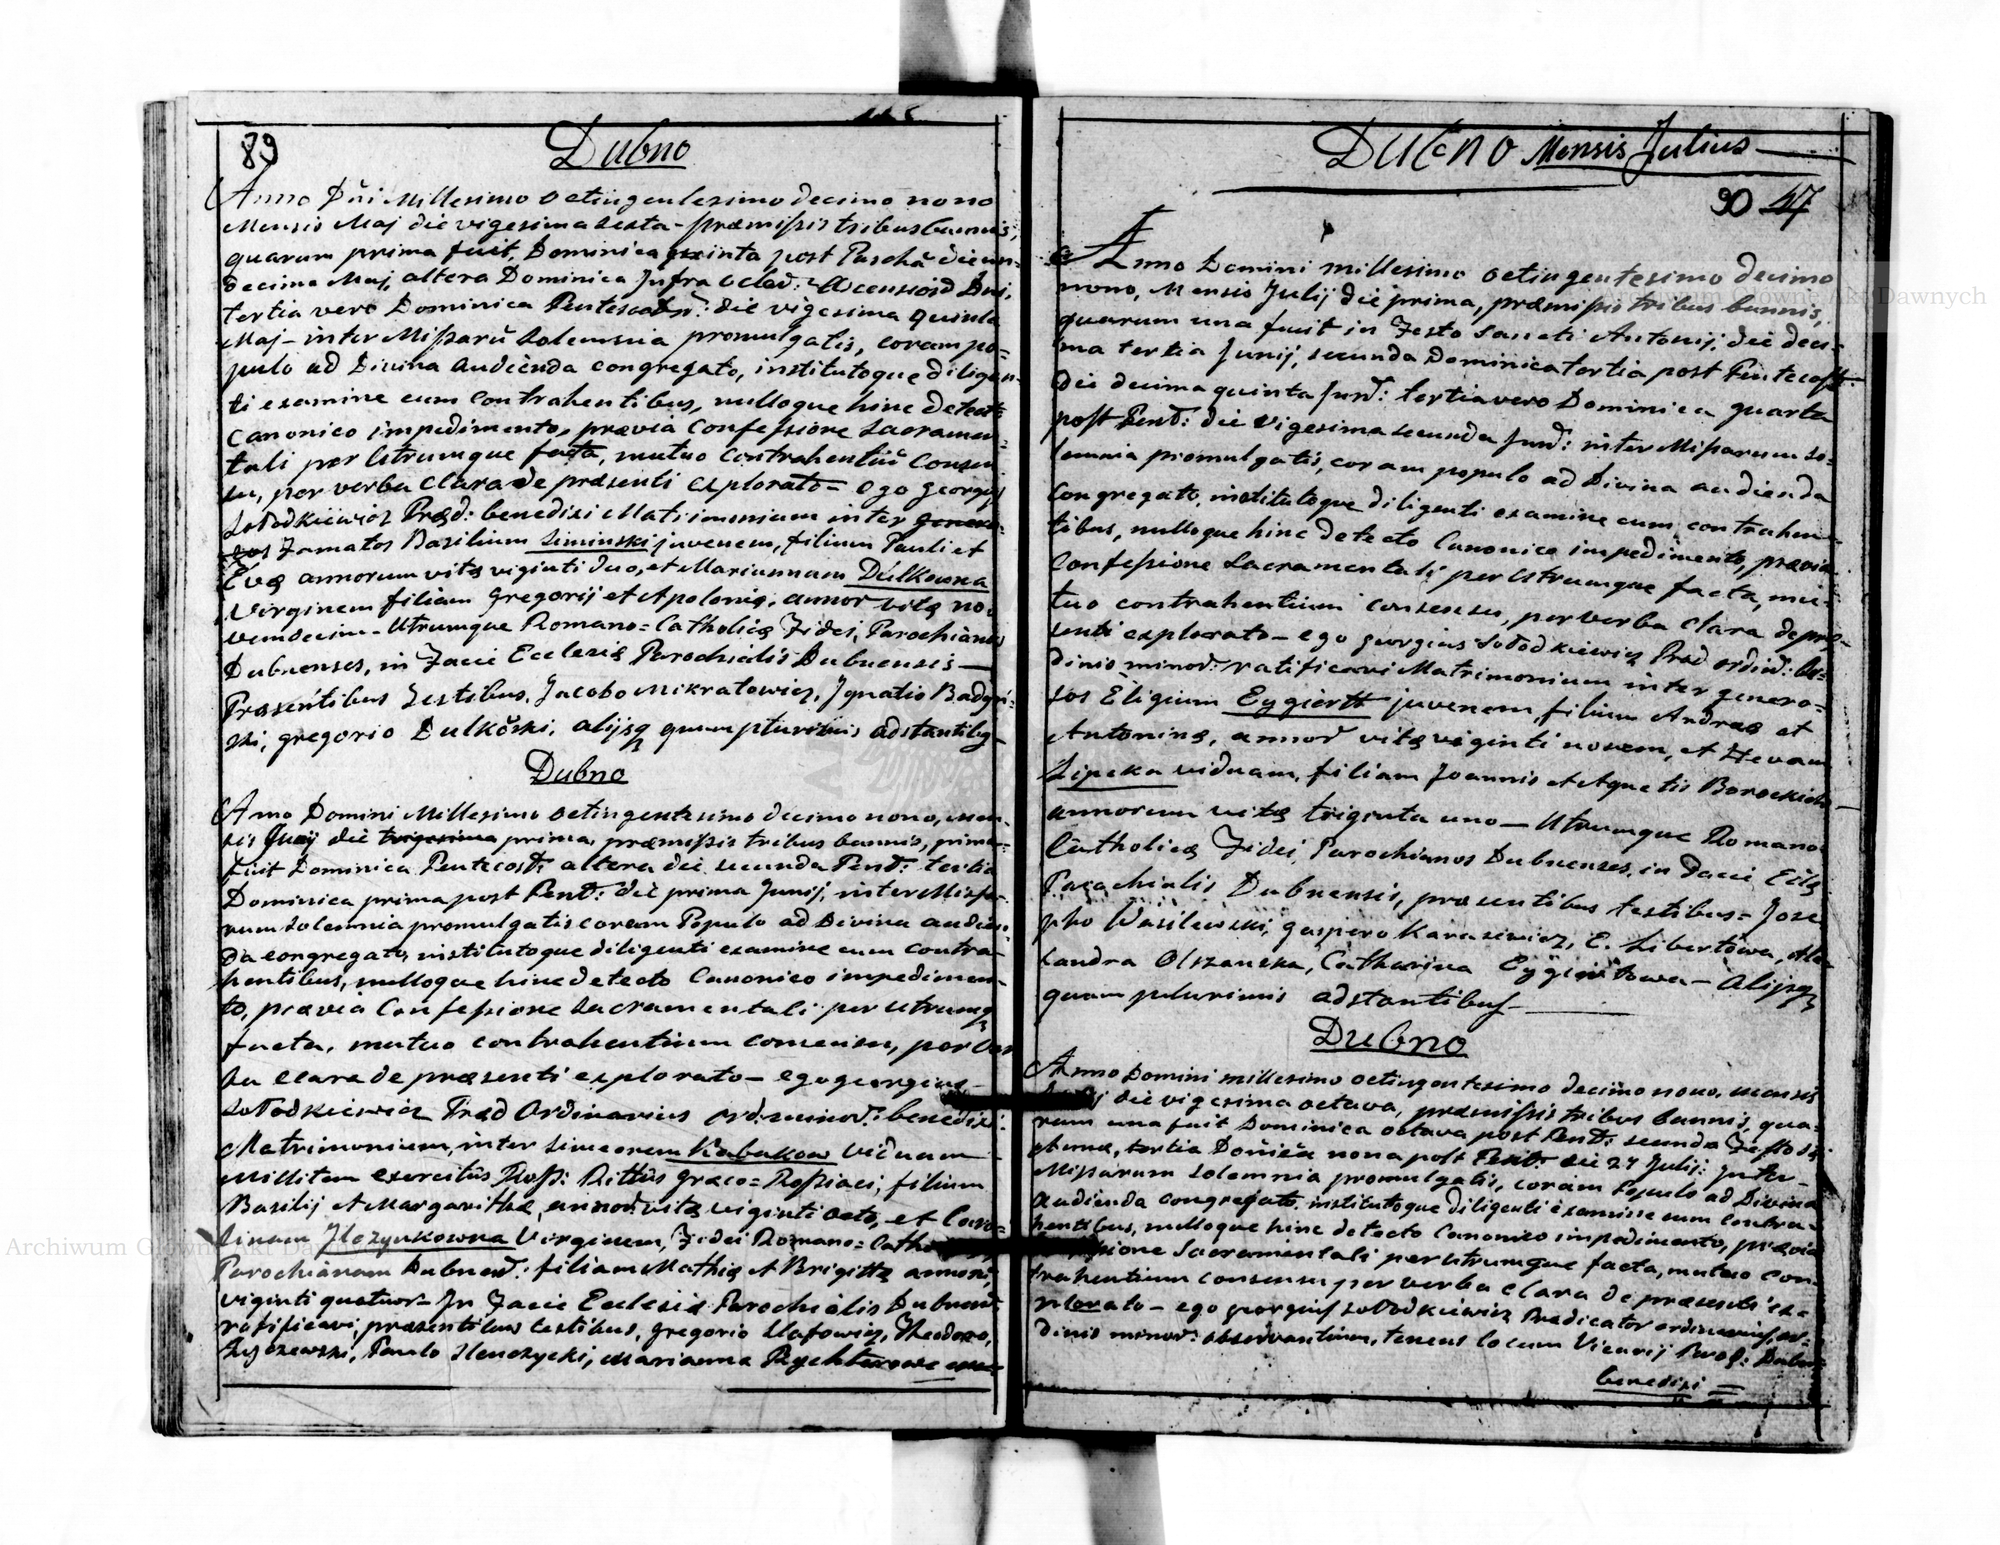 89
Dubno
Anno Dñi Millesimo Octingentesimo decimo nono
Mensis Maj die vigesima sexta - præmissis tribus bannis,
quarum prima fuit, Dominica quinta post Pascha die un-
decima Maj, altera Dominica Infra Octav: Ascensionis Dni,
tertia vero Dominica Pentecost: die vigesima quinta
Maj - inter Missarũ Solemnia promulgatis, coram po=
pulo ad Divina audienda congregato, institutoque diligen-
ti examine cum Contrahentibus, nulloque hinc detecto
Canonico impedimento, prævia Confessione Sacramen-
tali per Utrumque facta, mutuo Contrahentiũ Consen
su, per verba clara de præsenti explorato = ego georgius
Sołodkiewicz Præd: benedixi Matrimonium inter
Famatos Basilium Siminski juvenem, filium Pauli et
Evæ annorum vitæ viginti duo, et Mariannam Dulkowna
Virginem filiam Gregorij et Apoloniæ, annor vitæ no
vemdecim - Utrumque Romano = Catholicæ Fidei, Parochianos
Dubnenses, in Facie Ecclesiæ Parochialis Dubnensis —
Præsentibus Testibus, Jacobo Mikratowicz, Ignatio
ski, gregorio Dulkoski, alijsq quam pluribus adstantibq
Dubno
Anno Domini Millesimo Octingentesimo decimo nono, Men-
sis Junij die trigesima prima, præmissis tribus bannis, prima
fuit Dominica Pentecost: altera die secunda Pent: tertia
Dominica prima post Pent: die prima Junij, inter Missa-
rum Solemnia promulgatis coram Populo ad Divina audien-
da congregato, institutoque diligenti examine cum contra-
hentibus, nulloque hinc detecto Canonico impedimen-
to, prævia Confessione Sacramentali per utrumq
facta, mutuo contrahentium consensu, per ver
ba clara de præsenti explorato - ego georgius
Sołodkiewicz Præd Ordinarius ord: minor: benedixi
Matrimonium, inter Simeonem Kabakow viduam
Militem exercitûs Ross: Rittûs græco = Rossiaci, filium
Basilij et Margarithæ, annor vitæ viginti octo, et Caro=
linam Virginem, Fidei Romano = Catho
Parochianam Dubnen: filiam Mathiæ et Brigittæ annor
viginti quatuor - In Facie Ecclesiæ Parochialis Dubnen:
ratificavi, præsentibus testibus, gregorio Theodoro,
Paulo Marianna
Dubno Mensis Julius
90 47
Anno Domini millesimo octingentesimo decimo
nono, Mensis Julij die prima, præmissis tribus bannis,
quarum una fuit in Festo Sancti Antonij, die deci-
ma tertia Junij, secunda Dominica tertia post Pentecost:
die decima quinta Jun: tertia vero Dominica quarta
post Pent: die vigesima secunda Jun: inter Missarum So=
lemnia promulgatis, coram populo ad Divina audienda
Congregato, institutoque diligenti examine cum contrahen-
tibus, nulloque hinc detecto Canonico impedimento, prævia
Confessione Sacramentali per Utrumque facta, mu-
tuo contrahentium consensu, per verba clara de præ-
senti explorato - ego georgius Sołodkiewicz Præd ordin: or-
dinis minor: ratificavi Matrimonium inter genero=
sos Eligium Eygiertt juvenem, filium Andreæ et
Antoninæ, annor vitæ viginti novem, et Hevam
Lipska viduam, filiam Joannis et Agnetis
annorum vitæ triginta uno — Utrumque Romano
Catholicæ Fidei, Parochianos Dubnenses, in Facie Eclæ
Parachialis Dubnensis, præsentibus testibus = Jose
pho Wasilewski, gaspero Karasiewicz, C. Libertowa, Ale
xandra Olszanska, Catharina Eygiertowa - Alijsq
quam plurimis adstantibus —
Dubno
Anno Domini millesimo octingentesimo decimo nono, mensis
die vigesima octava, præmissis tribus bannis, qua-
rum una fuit Dominica octava post Pent: secunda Festo S:
Annæ, tertia Donica nona post Pent: die 27 Julij: Inter
Missarum Solemnia promulgatis, coram Populo ad Divina
Audienda congregato, institutoque diligenti examine cum Contra-
hentibus, nulloque hinc detecto Canonico impedimento, prævia
Confessione Sacramentali per Utrumque facta, mutuo Con-
trahentium consensu per verba clara de præsenti ex-
plorato - ego georgius Sołodkiewicz Prædicator ordinarius, or-
dinis minor: observantium, tenens locum Vicarij Paro: Dubn:
benedixi =